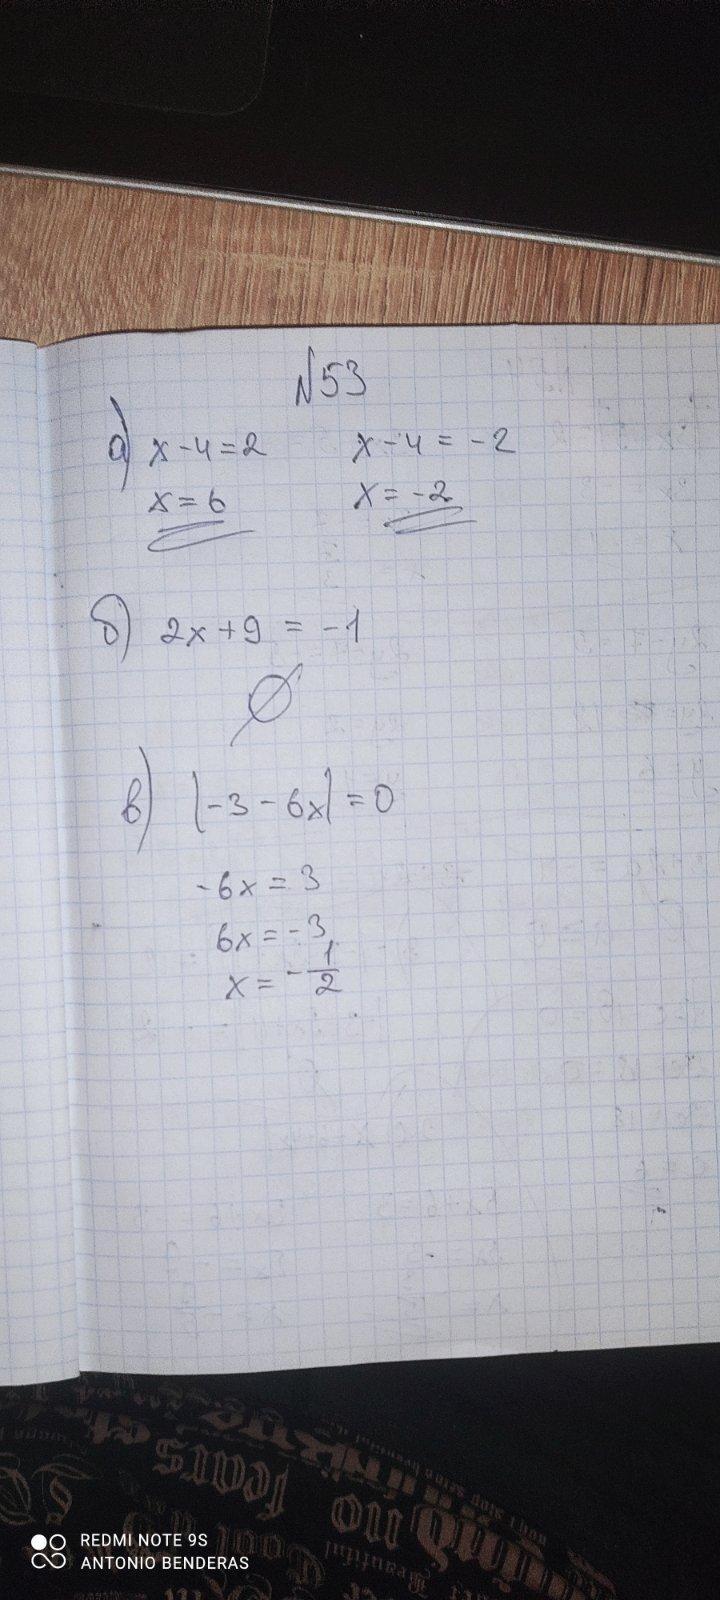 №53
а) x-4=2 x-4=-2
x=6 x=-2
б) 2x+9=-1
∅
в) |-3-6x|=0
-6x=3
6x=-3
x=-1/2
tears
no
Cool
Beautiful
REDMI NOTE 9S
ANTONIO BENDERAS